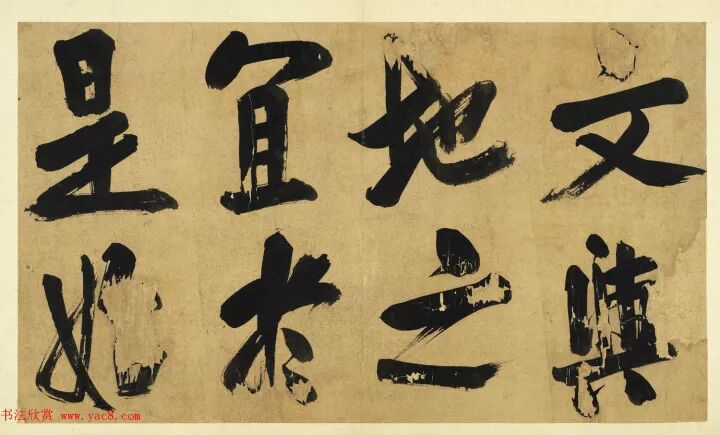 文與
地之
宜於
是始
书法欣赏 www.yac8.com